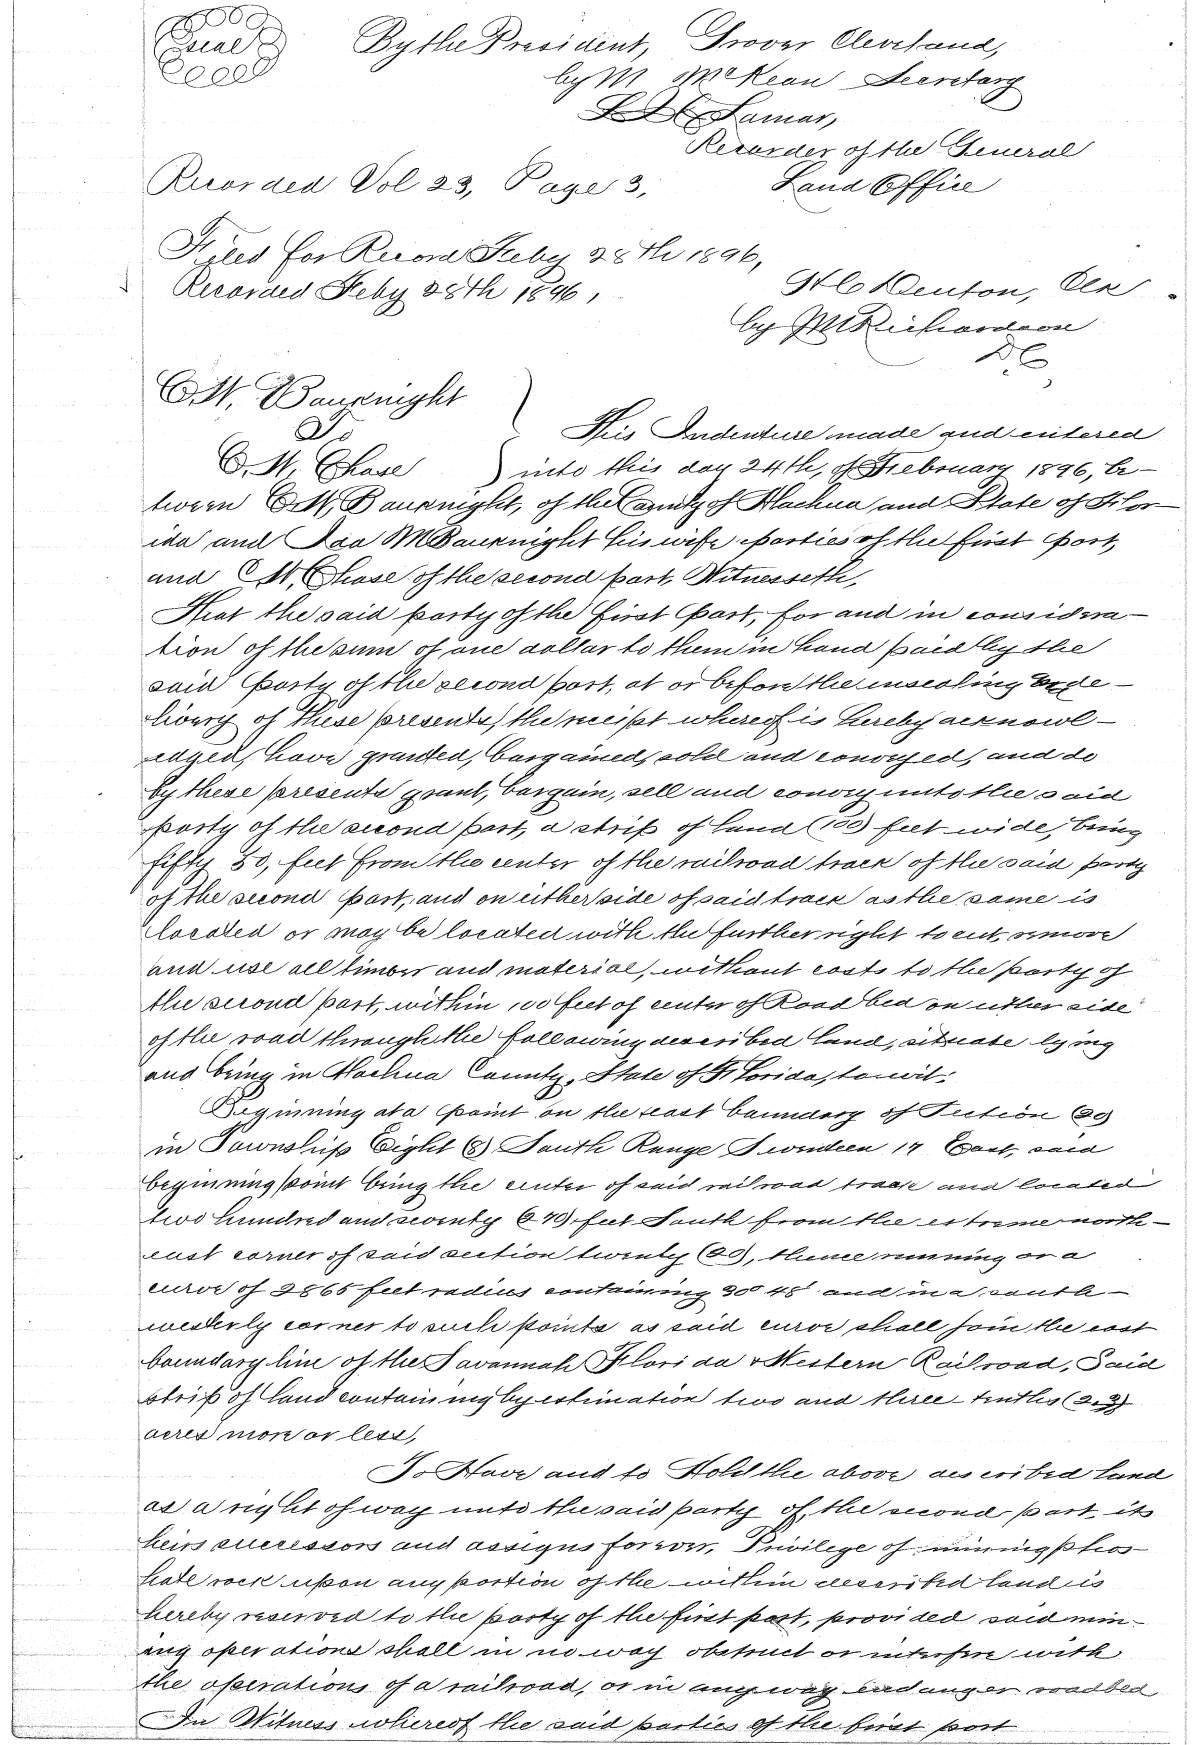 Seal By the President, Grover Cleveland,
by M McKean Secretary
Lamar,
Recorder of the General
Recorded Vol 23, Page 3, Land Office
Filed for Record Feby 28th 1896,
Recorded Feby 28th 1896,
Denton, Clk
by Richardson
DC
C. W. Bauknight
To This Indenture made and entered
C. W. Chase into this day 24th, of February 1896, be-
tween C. W. Bauknight, of the County of Alachua and State of Flor-
ida and Ida M Bauknight his wife parties of the first part,
and C W, Chase of the second part, Witnesseth,
That the said party of the first part, for and in considera-
tion of the sum of one dollar to them in hand paid by the
said party of the second part, at or before the ensealing de-
livery of these presents, the receipt whereof is hereby acknowl-
edged, have granted, bargained, sold and conveyed, and do
by these presents grant, bargain, sell and convey unto the said
party of the second part, a strip of land (100) feet wide, being
fifty 50, feet from the center of the railroad track of the said party
of the second part, and on either side of said track as the same is
located or may be located with the further right to cut, remove
and use all timber and material, without costs to the party of
the second part, within 100 feet of center of Road bed on either side
of the road through the following described land, situate lying
and being in Alachua County, State of Florida, to-wit:
Beginning at a point on the east boundary of Section (20)
in Township Eight (8) South Range 17 East, said
beginning point being the center of said railroad track and located
two hundred and seventy (270) feet South from the extreme north-
east corner of said section twenty (20), thence running on a
curve of 2865 feet radius containing 30° 48' and in a south-
westerly corner to such points as said curve shall join the east
boundary line of the Savannah Florida & Western Railroad, Said
strip of land containing by estimation two and three-tenths (2.3)
acres more or less,
To Have and to Hold the above described land
as a right of way unto the said party of the second part, its
heirs successors and assigns forever, Privilege of mining phos-
hate rock upon any portion of the within described land is
hereby reserved to the party of the first part, provided said min-
ing operations shall in no way obstruct or interfere with
the operations of a railroad, or in any way endanger roadbed
In Witness whereof the said parties of the first part